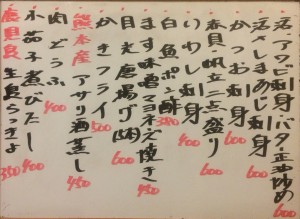 活アワビ刺身 バター正油炒め 600
活〆しまあじ刺身 600
かつお刺身 600
いわし刺身 600
青貝帆立二点盛り 600
白魚ポン酢 400
ます味噌マヨネーズ焼き 450
目光唐揚げ 600
かきフライ 600
熊本産 アサリ酒蒸し 450
肉どうふ 400
小茄子煮びたし 400
鹿児島 生島らっきょ 350